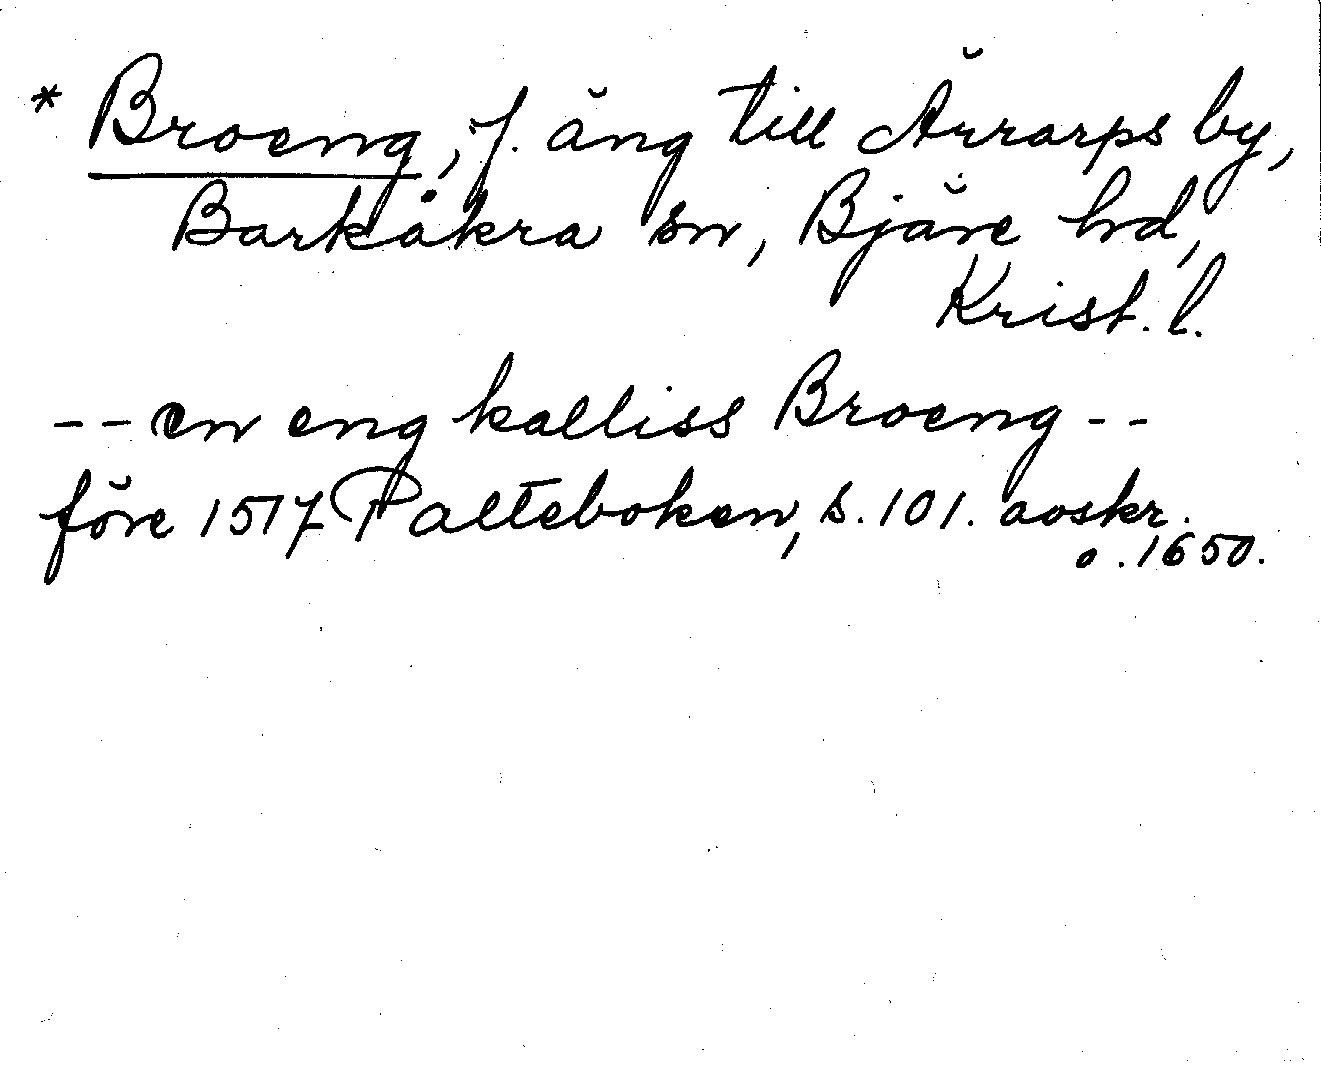 * Broeng, f. äng till Ärrarps by,
Barkåkra sn, Bjäre hd,
Krist. l.
-- en eng kalliss Broeng --
före 1517 Palteboken, s. 101. avskr.
o. 1650.